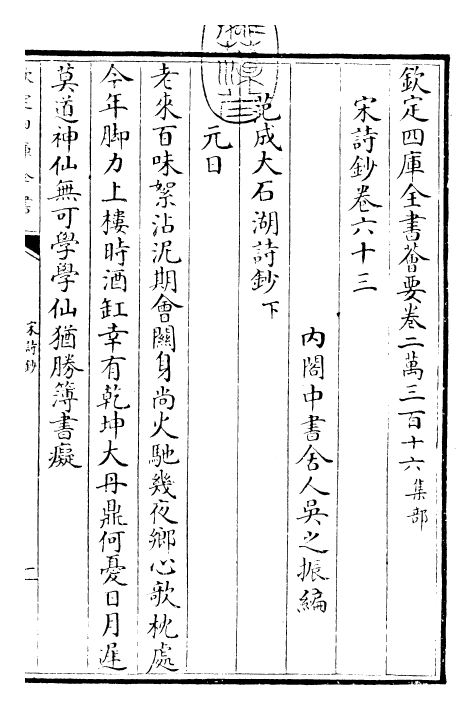 欽定四庫全書薈要卷二萬三百十六集部
宋詩鈔卷六十三
內閣中書舍人吳之振編
范成大石湖詩鈔下
元日
老來百味絮沾泥期會關身尚火馳幾夜鄉心欹枕處
今年脚力上樓時酒缸幸有乾坤大丹鼎何憂日月遲
莫道神仙無可學學仙猶勝簿書癡
宋詩鈔